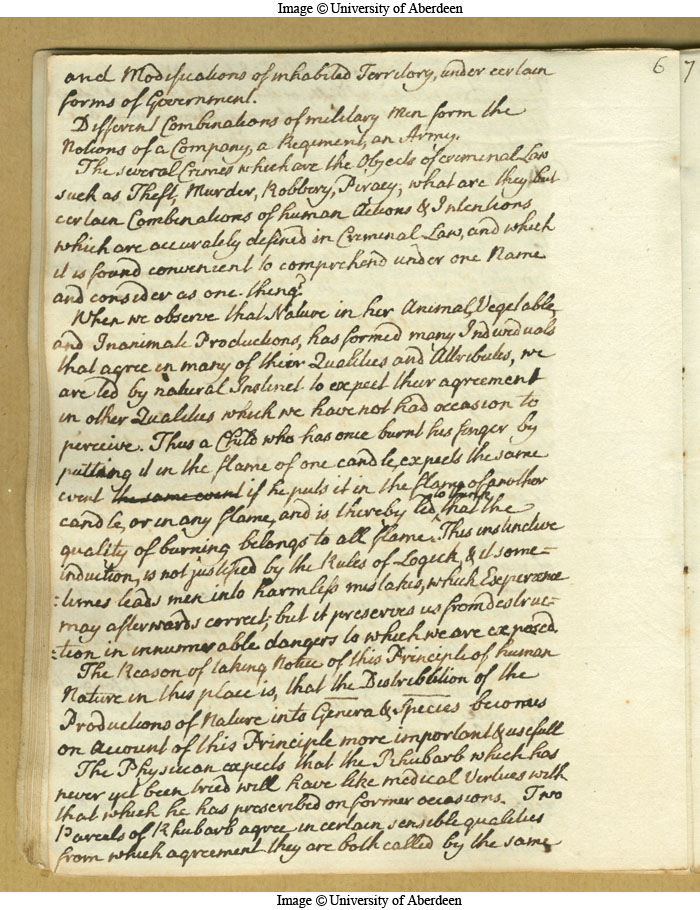 Image © University of Aberdeen
6
7
and Modifications of inhabited Territory, under certain
forms of Government.
Different Combinations of military Men form the
Notions of a Company, a Regiment, an Army.
The several Crimes which are the Objects of criminal Law
such as Theft, Murder, Robbery, Piracy, what are they but
certain Combinations of human Actions & Intentions
which are accurately defined in Criminal Law, and which
it is found convenient to comprehend under one Name
and consider as one thing?
When we observe that Nature in her Animal, Vegetable
and Inanimate Productions, has formed many Individuals
that agree in many of their Qualities and Attributes, we
are led by natural Instinct to expect their agreement
in other Qualities which we have not had occasion to
perceive. Thus a Child who has once burnt his finger by
putting it in the flame of one candle, expects the same
event the same event if he puts it in the flame of another
candle, or in any flame, and is thereby led to think that the
quality of burning belongs to all flame. This instinctive
induction, is not justified by the Rules of Logick, & it some=
=times leads men into harmless mistakes, which Experience
may afterwards correct; but it preserves us from destruc=
=tion in innumerable dangers to which we are exposed.
The Reason of taking Notice of this Principle of human
Nature in this place is, that the Distribution of the
Productions of Nature into Genera & Species becomes
on account of this Principle more important & usefull
The Physician expects that the Rhubarb which has
never yet been tried will have like medical Virtues with
that which he has prescribed on former occasions. Two
Parcels of Rhubarb agree in certain sensible qualities
from which agreement they are both called by the same
Image © University of Aberdeen